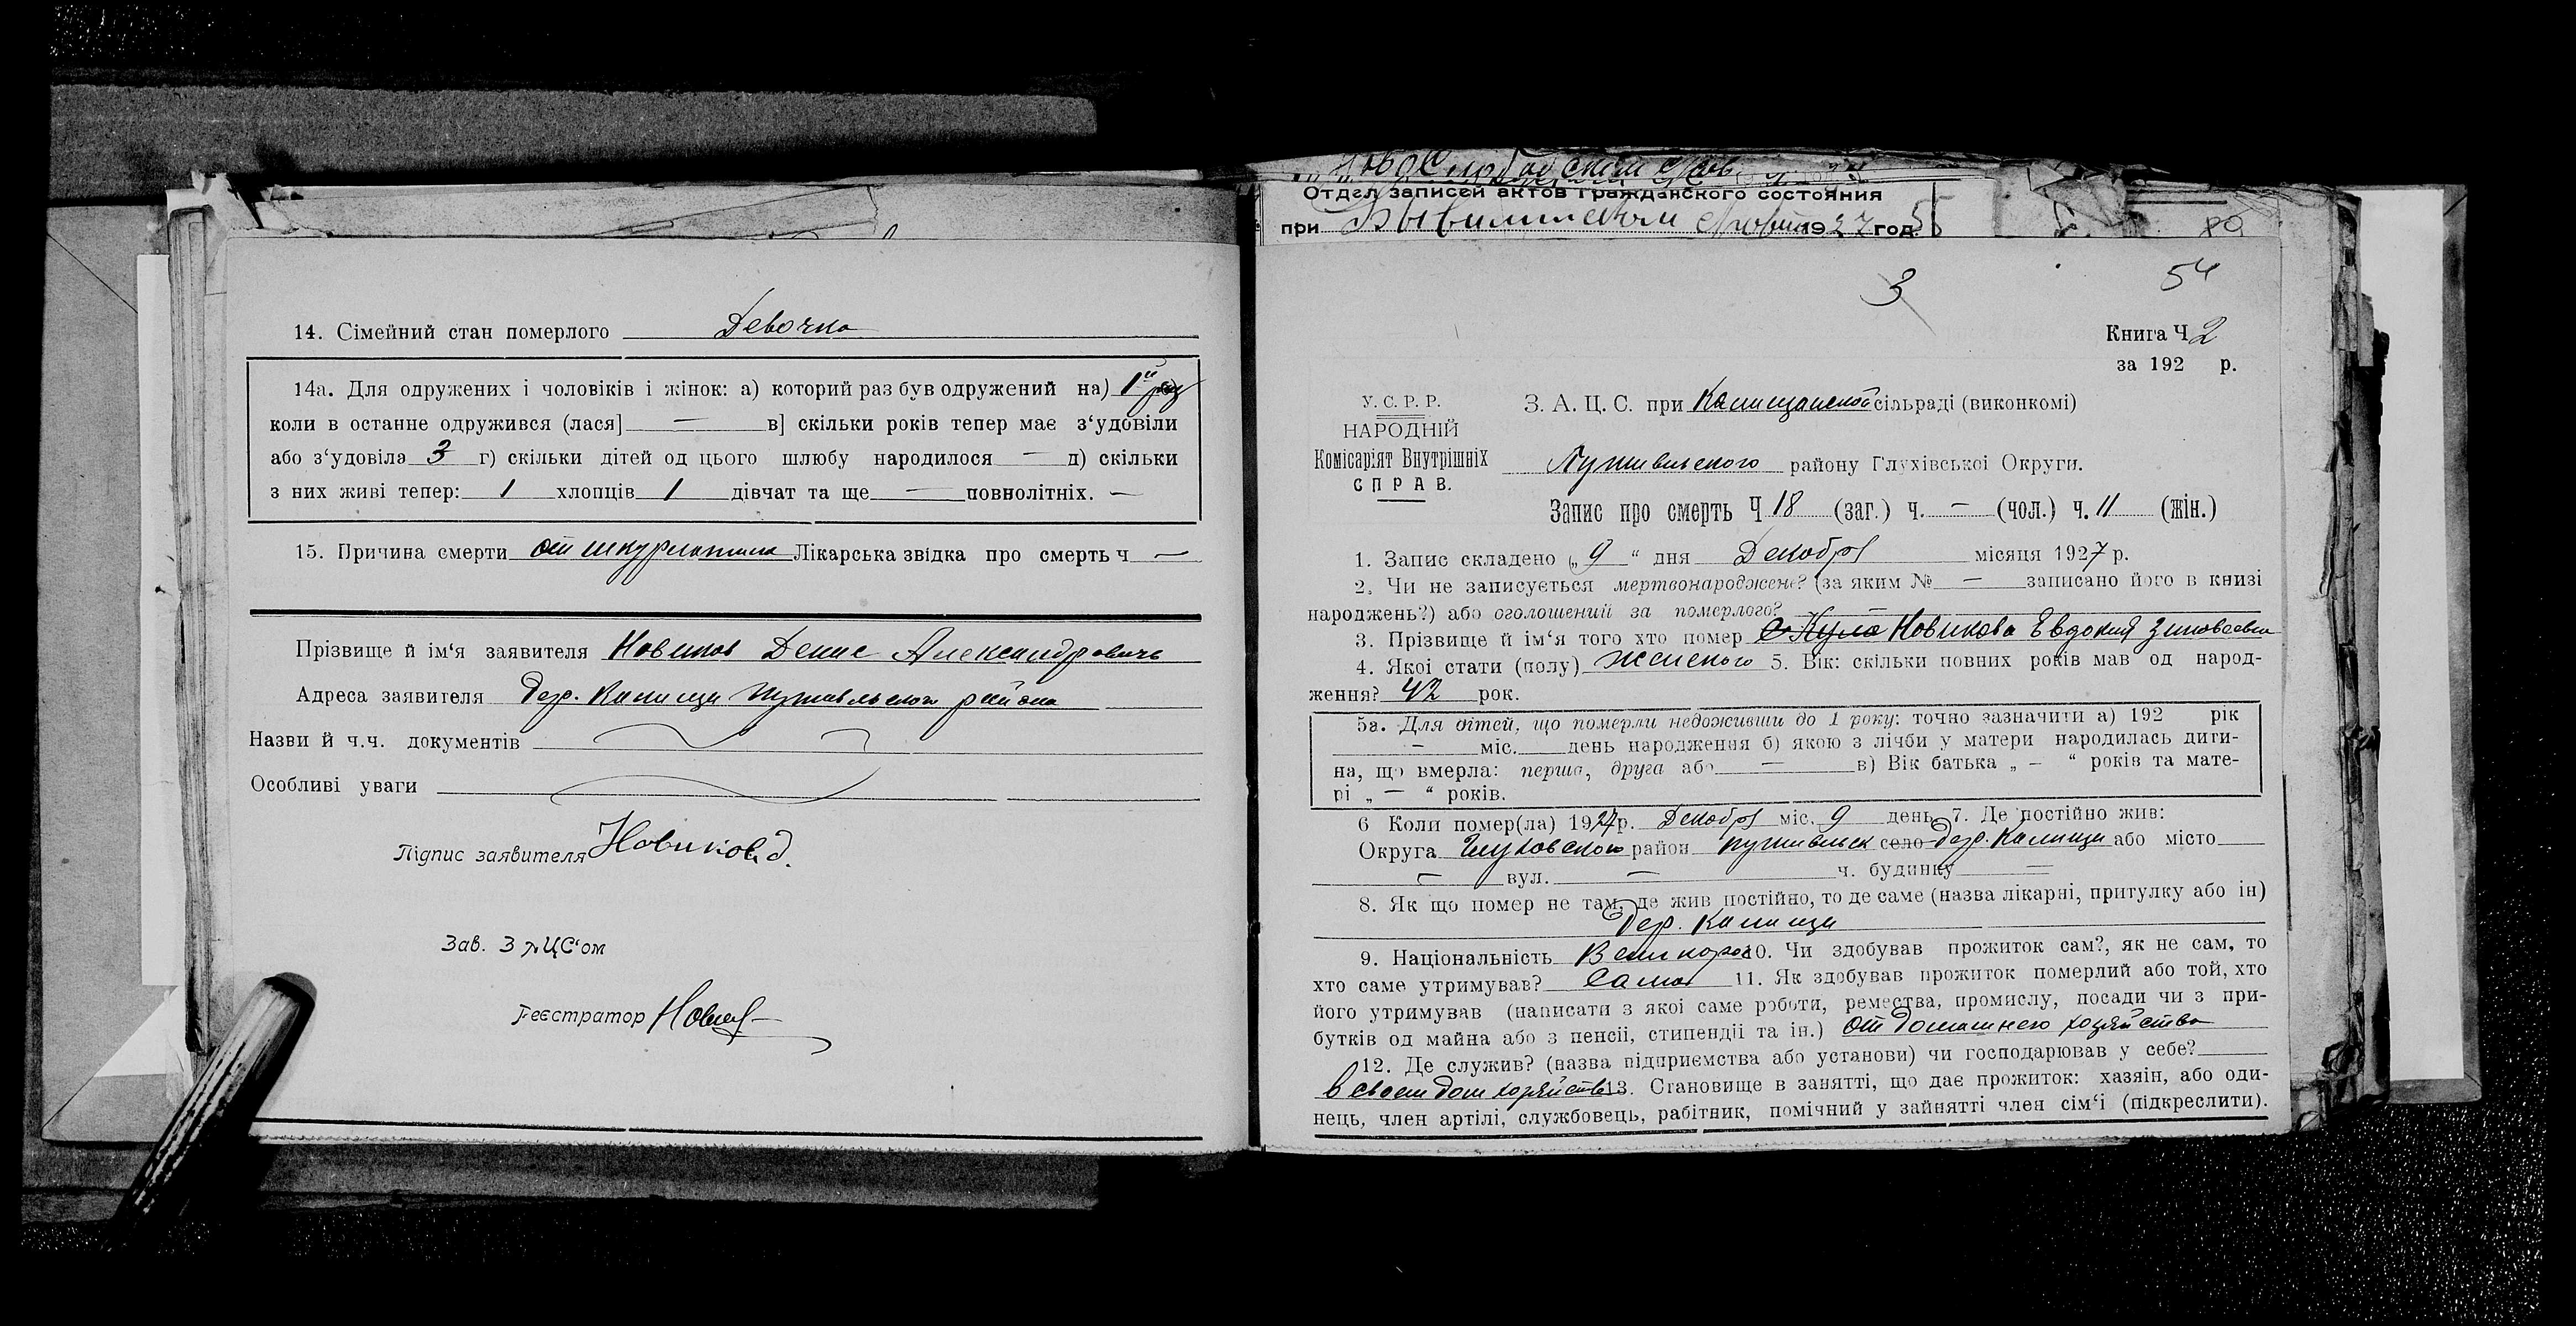 14. Сімейний стан померлого Девочка
14а. Для одружених і чоловіків і жінок: а) которий раз був одружений на) 1й раз
коли в останне одружився (лася] — в] скільки років тепер має з‘удовіли
або з‘удовіла 3 г) скільки дітей од цього шлюбу народилося — д) скільки
з них живі тепер: 1 хлопців 1 дівчат та ще — повнолітніх. —
15. Причина смерти от шкурлатина Лікарська звідка про смерть ч —
Прізвище й ім‘я заявителя Новиков Денис Александровичь
Адреса заявителя дер. Калищи Путивльского района
Назви й ч.ч. документів
Особливі уваги
Підпис заявителя Новиков д.
Зав. ЗАЦС‘ом
Реєстратор
Отдел записей актов гражданского состояния
при 1927 год.
3
54
Книга Ч 2
за 192 р.
У. С. Р. Р.
НАРОДНІЙ
Комісаріят Внутрішніх
СПРАВ.
З. А. Ц. С. при Калищанской сільраді (виконкомі)
Путивльского району Глухівської Округи.
Запис про смерть Ч 18 (заг.) ч. — (чол.) ч. 11 (жін.)
1. Запис складено „9“ дня Декабря місяця 1927 р.
2. Чи не записується мертвонароджене? (за яким № — записано його в книзі
народжень?) або оголошений за померлого?
3. Прізвище й ім‘я того хто помер Новикова Евдокия Зиновеевна
4. Якої стати (полу) женского 5. Вік: скільки повних років мав од народ-
ження? 42 рок.
5а. Для дітей, що померли недоживши до 1 року: точно зазначити а) 192 рік
— міс. день народження б) якою з лічби у матери народилась дити-
на, що вмерла: перша, друга або — в) Вік батька „ — “ років та мате-
рі „ — “ років.
6 Коли помер(ла) 1927р. Декабря міс. 9 день. 7. Де постійно жив:
Округа Глуховского район путивльск село дер. Калищи або місто
— вул. — ч. будинку —
8. Як що помер не там, де жив постійно, то де саме (назва лікарні, притулку або ін)
дер. Калищи
9. Національність Великорос 10. Чи здобував прожиток сам?, як не сам, то
хто саме утримував? Сама 11. Як здобував прожиток померлий або той, хто
його утримував (написати з якої саме роботи, ремества, промислу, посади чи з при-
бутків од майна або з пенсії, стипендії та ін.) от домашнего хозяйства
12. Де служив? (назва підприємства або установи) чи господарював у себе?
в своем дом хозяйстве 13. Становище в занятті, що дає прожиток: хазяін, або оди-
нець, член артілі, службовець, рабітник, помічний у зайнятті член сім‘і (підкреслити).